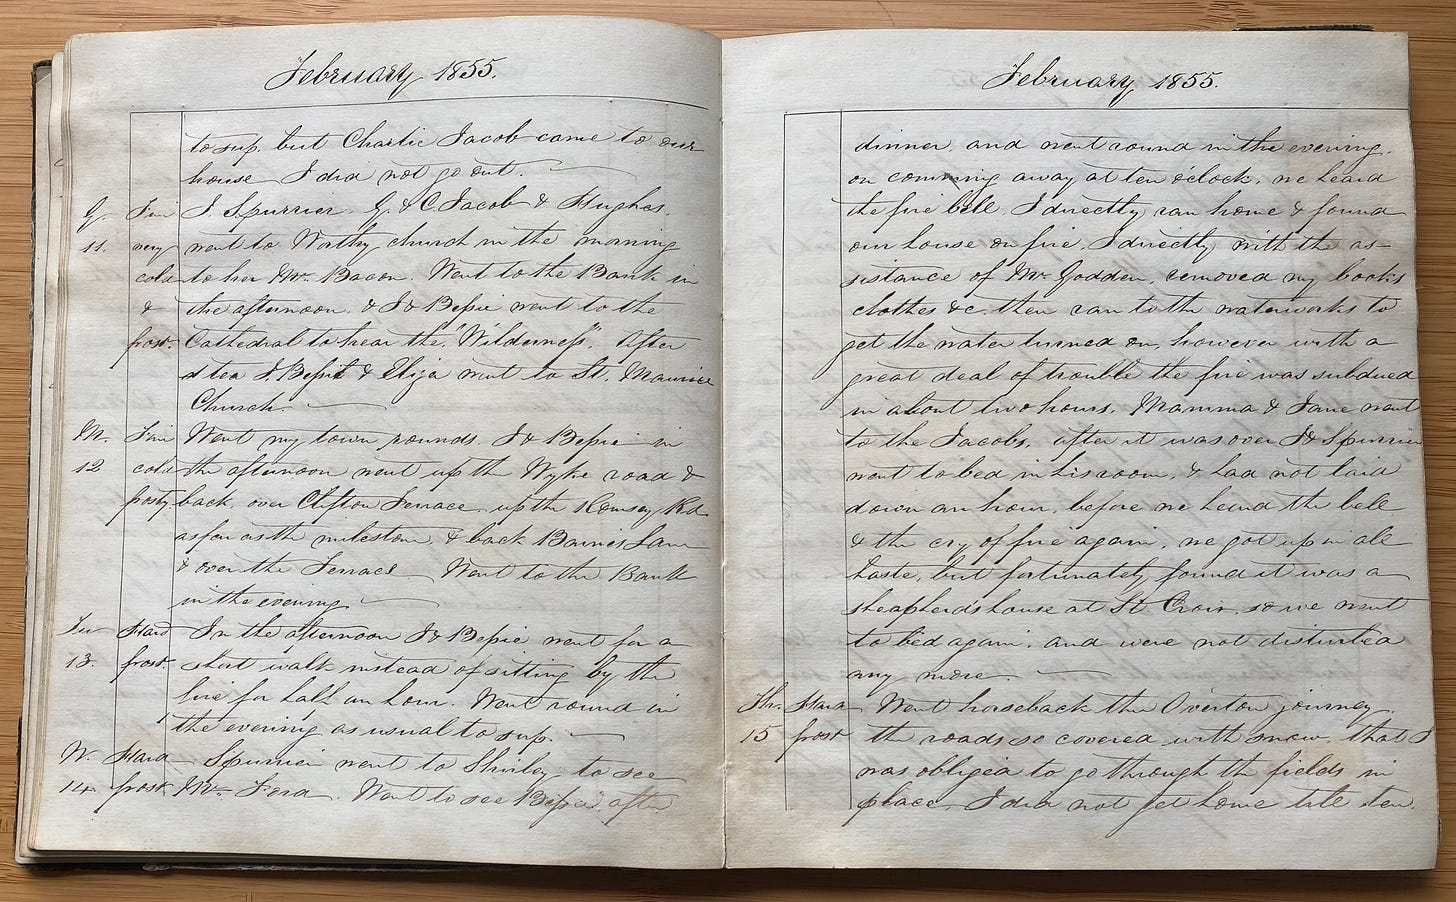 February 1855.
to sup. but Charlie Jacob came to our
house I did not go out.
G. Fair J. Spurrier. G. & C. Jacob & Hughes.
11. very went to Worthy church in the morning
cold to her Mr. Bacon. Went to the Bank in
& the afternoon. & I & Bessie went to the
frost. Cathedral to hear the "Wilderness". After
tea I, Bessie & Eliza went to St. Maurice
Church.
M. Fair Went my town rounds. I & Bessie in
12 cold the afternoon went up the Wyke road &
frosty back, over Clifton Terrace up the Romsey Rd
as far as the milestone, & back Barnes Lane
& over the Terrace. Went to the Bank
in the evening
Tu Hard In the afternoon I & Bessie went for a
13. frost short walk instead of sitting by the
fire for half an hour. Went round in
the evening as usual to sup.
W. Hard Spurrier went to Shirley, to see
14. frost Mr. Ford. Went to see Bessie after
February 1855.
dinner and went round in the evening.
on comming away at ten o'clock, we heard
the fire bell. I directly ran home & found
our house on fire. I directly with the as-
sistance of Mr Godden, removed my books
clothes &c. then ran to the waterworks to
get the water turned on, however with a
great deal of trouble the fire was subdued
in about two hours. Mamma & Jane went
to the Jacobs, after it was over I & Spurrier
went to bed in his room, & had not laid
down an hour, before we heard the bell
& the cry of fire again, we got up in all
haste, but fortunately found it was a
sheapherd's house at St. Croix, so we went
to bed again. and were not disturbed
any more.
Th. Hard Went horseback the Overton journey.
15 frost the roads so covered with snow, that I
was obliged to go through the fields in
place. I did not get home till ten.